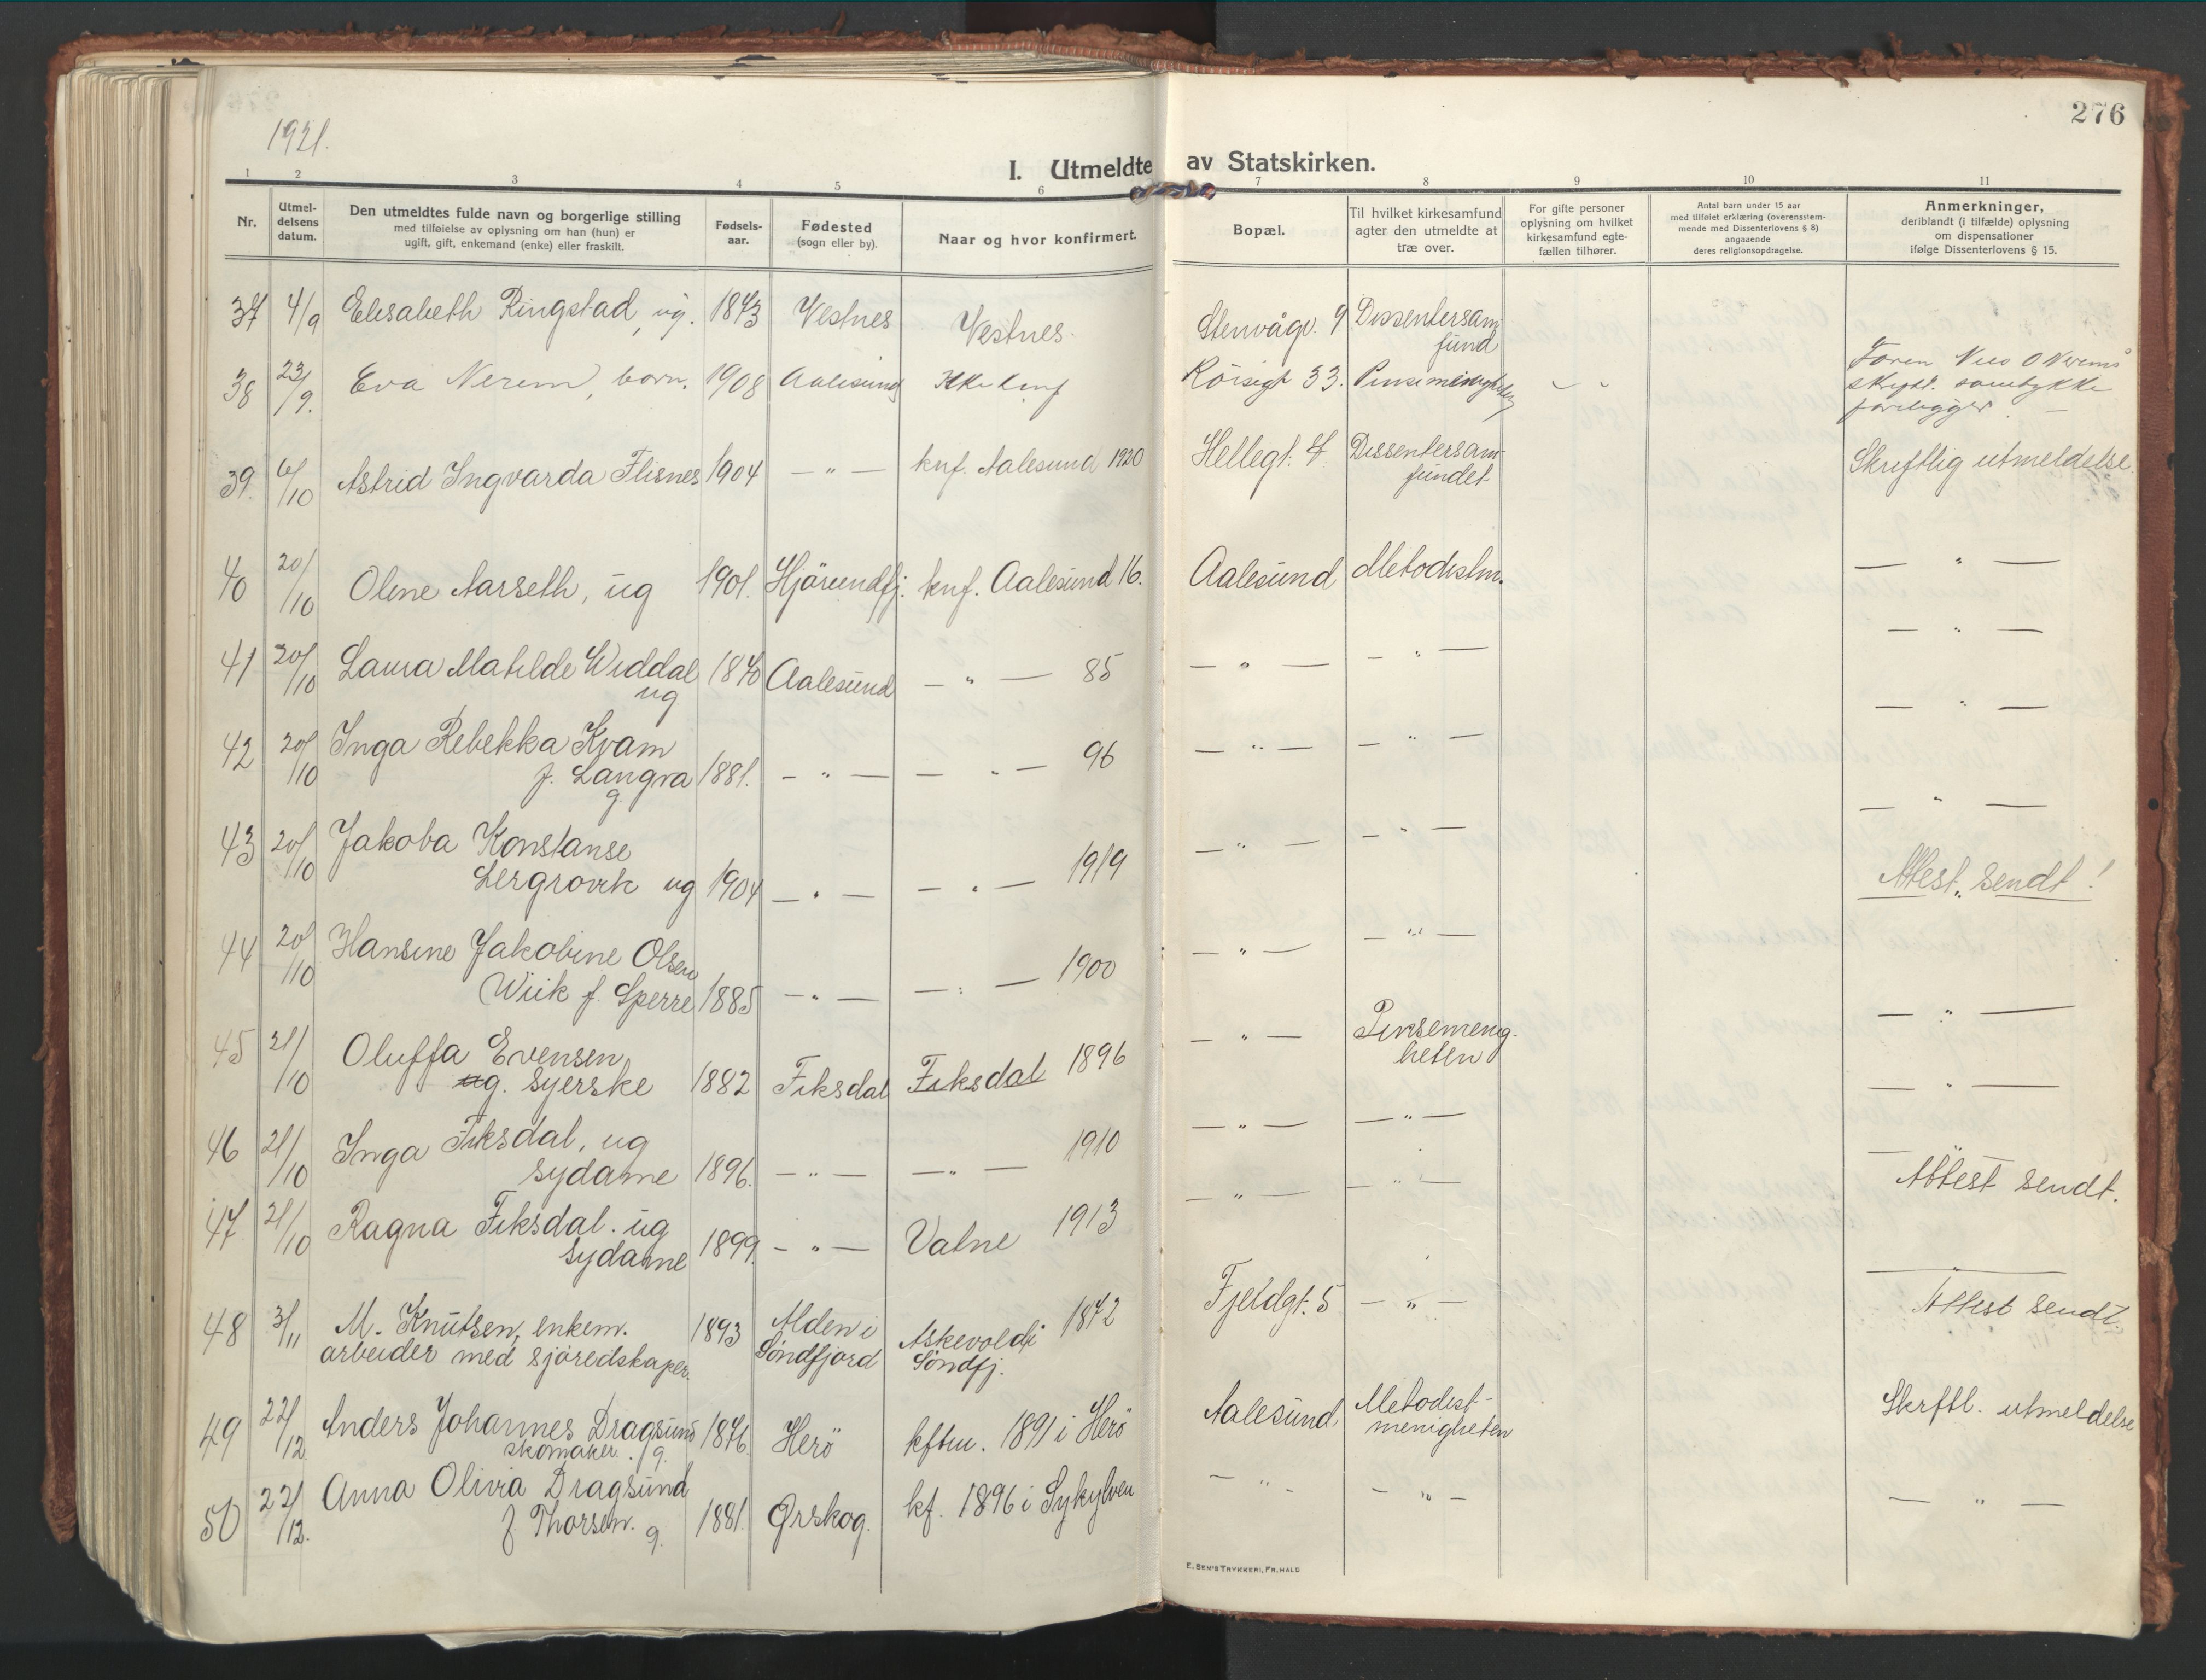 1921.
276
I. Utmeldte av Statskirken.
1 2 3 4 5 6 7 8 9 10 11
Nr.
Utmel-
delsens
datum.
Den utmeldtes fulde navn og borgerlige stilling
med tilføielse av oplysning om han (hun) er
ugift, gift, enkemand (enke) eller fraskilt.
Fødsels-
aar.
Fødested
(sogn eller by).
Naar og hvor konfirmert.
Bopæl.
Til hvilket kirkesamfund
agter den utmeldte at
træ over.
For gifte personer
oplysning om hvilket
kirkesamfund egte-
fællen tilhører.
Antal barn under 15 aar
med tilføiet erklæring (overensstem-
mende med Dissenterlovens § 8)
angaaende
deres religionsopdragelse.
Anmerkninger,
deriblandt (i tilfælde) oplysning
om dispensationer
ifølge Dissenterlovens § 15.
37 4/9 Elisabeth Ringstad, ug. 1873 Vestnes Vestnes. Stenvågv. 9 Dissentersam
fund
38 23/9. Eva Nerem, barn. 1908 Aalesund Ikke konf 33. Pinsemenigheten - -
skriftl. samtykke
foreligger. -
39. 6/10 Astrid Ingvarda Flisnes 1904 - " - knf. Aalesund 1920 Hellegt. 7 Dissentersam-
fundet Skriftlig utmeldelse.
40 20/10 Oline Aarseth, ug 1901. Hjörundfj. knf. Aalesund 16. Aalesund Metodistm. - " -
41 20/10 Laura Matilde Widdal 1870 Aalesund - " - 85 - " - - " - - " -
ug
42 20/10 Inga Rebekka Kvam
f. Langva 1881. - " - - " - 96 - " - - " - - " -
g.
43 20/10 Jakoba Konstanse
Lergrovik ug 1904 - " - - " - 1919 - " - - " - - " -
Attest sendt!
44 20/10 Hansine Jakobine Olsen
Wiik f. Sperre 1885 - " - - " - 1900 - " - - " - - " -
45 21/10 Oluffa Evensen
ug. syerske 1882 Fiksdal Fiksdal 1896 - " - Pinsemenig-
heten - " -
46 21/10 Inga Fiksdal, ug
sydame 1896. - " - - " - 1910 - " - - " - - " -
Attest sendt.
47 21/10 Ragna Fiksdal. ug
sydame 1899. - " - Vatne 1913 - " - - " - - " -
48 3/11 M. Knutsen, enkem. 1893 Alden i Askevold i 1872 Fjeldgt. 5 - " - Attest sendt.
arbeider med sjøredskaper. Söndfjord Söndfj.
49 22/12 Anders Johannes Dragsund 1876. Herö kftm. 1891 i Herö Aalesund, Metodist-
menigheten Skrftl. utmeldelse
skomaker. g.
50 22/12. Anna Olivia Dragsund
f. Thorsen. g. 1881. Ørskog. kf. 1896 i Sykylven - " - - " - - " -
E. SEM'S TRYKKERI, FR. HALD